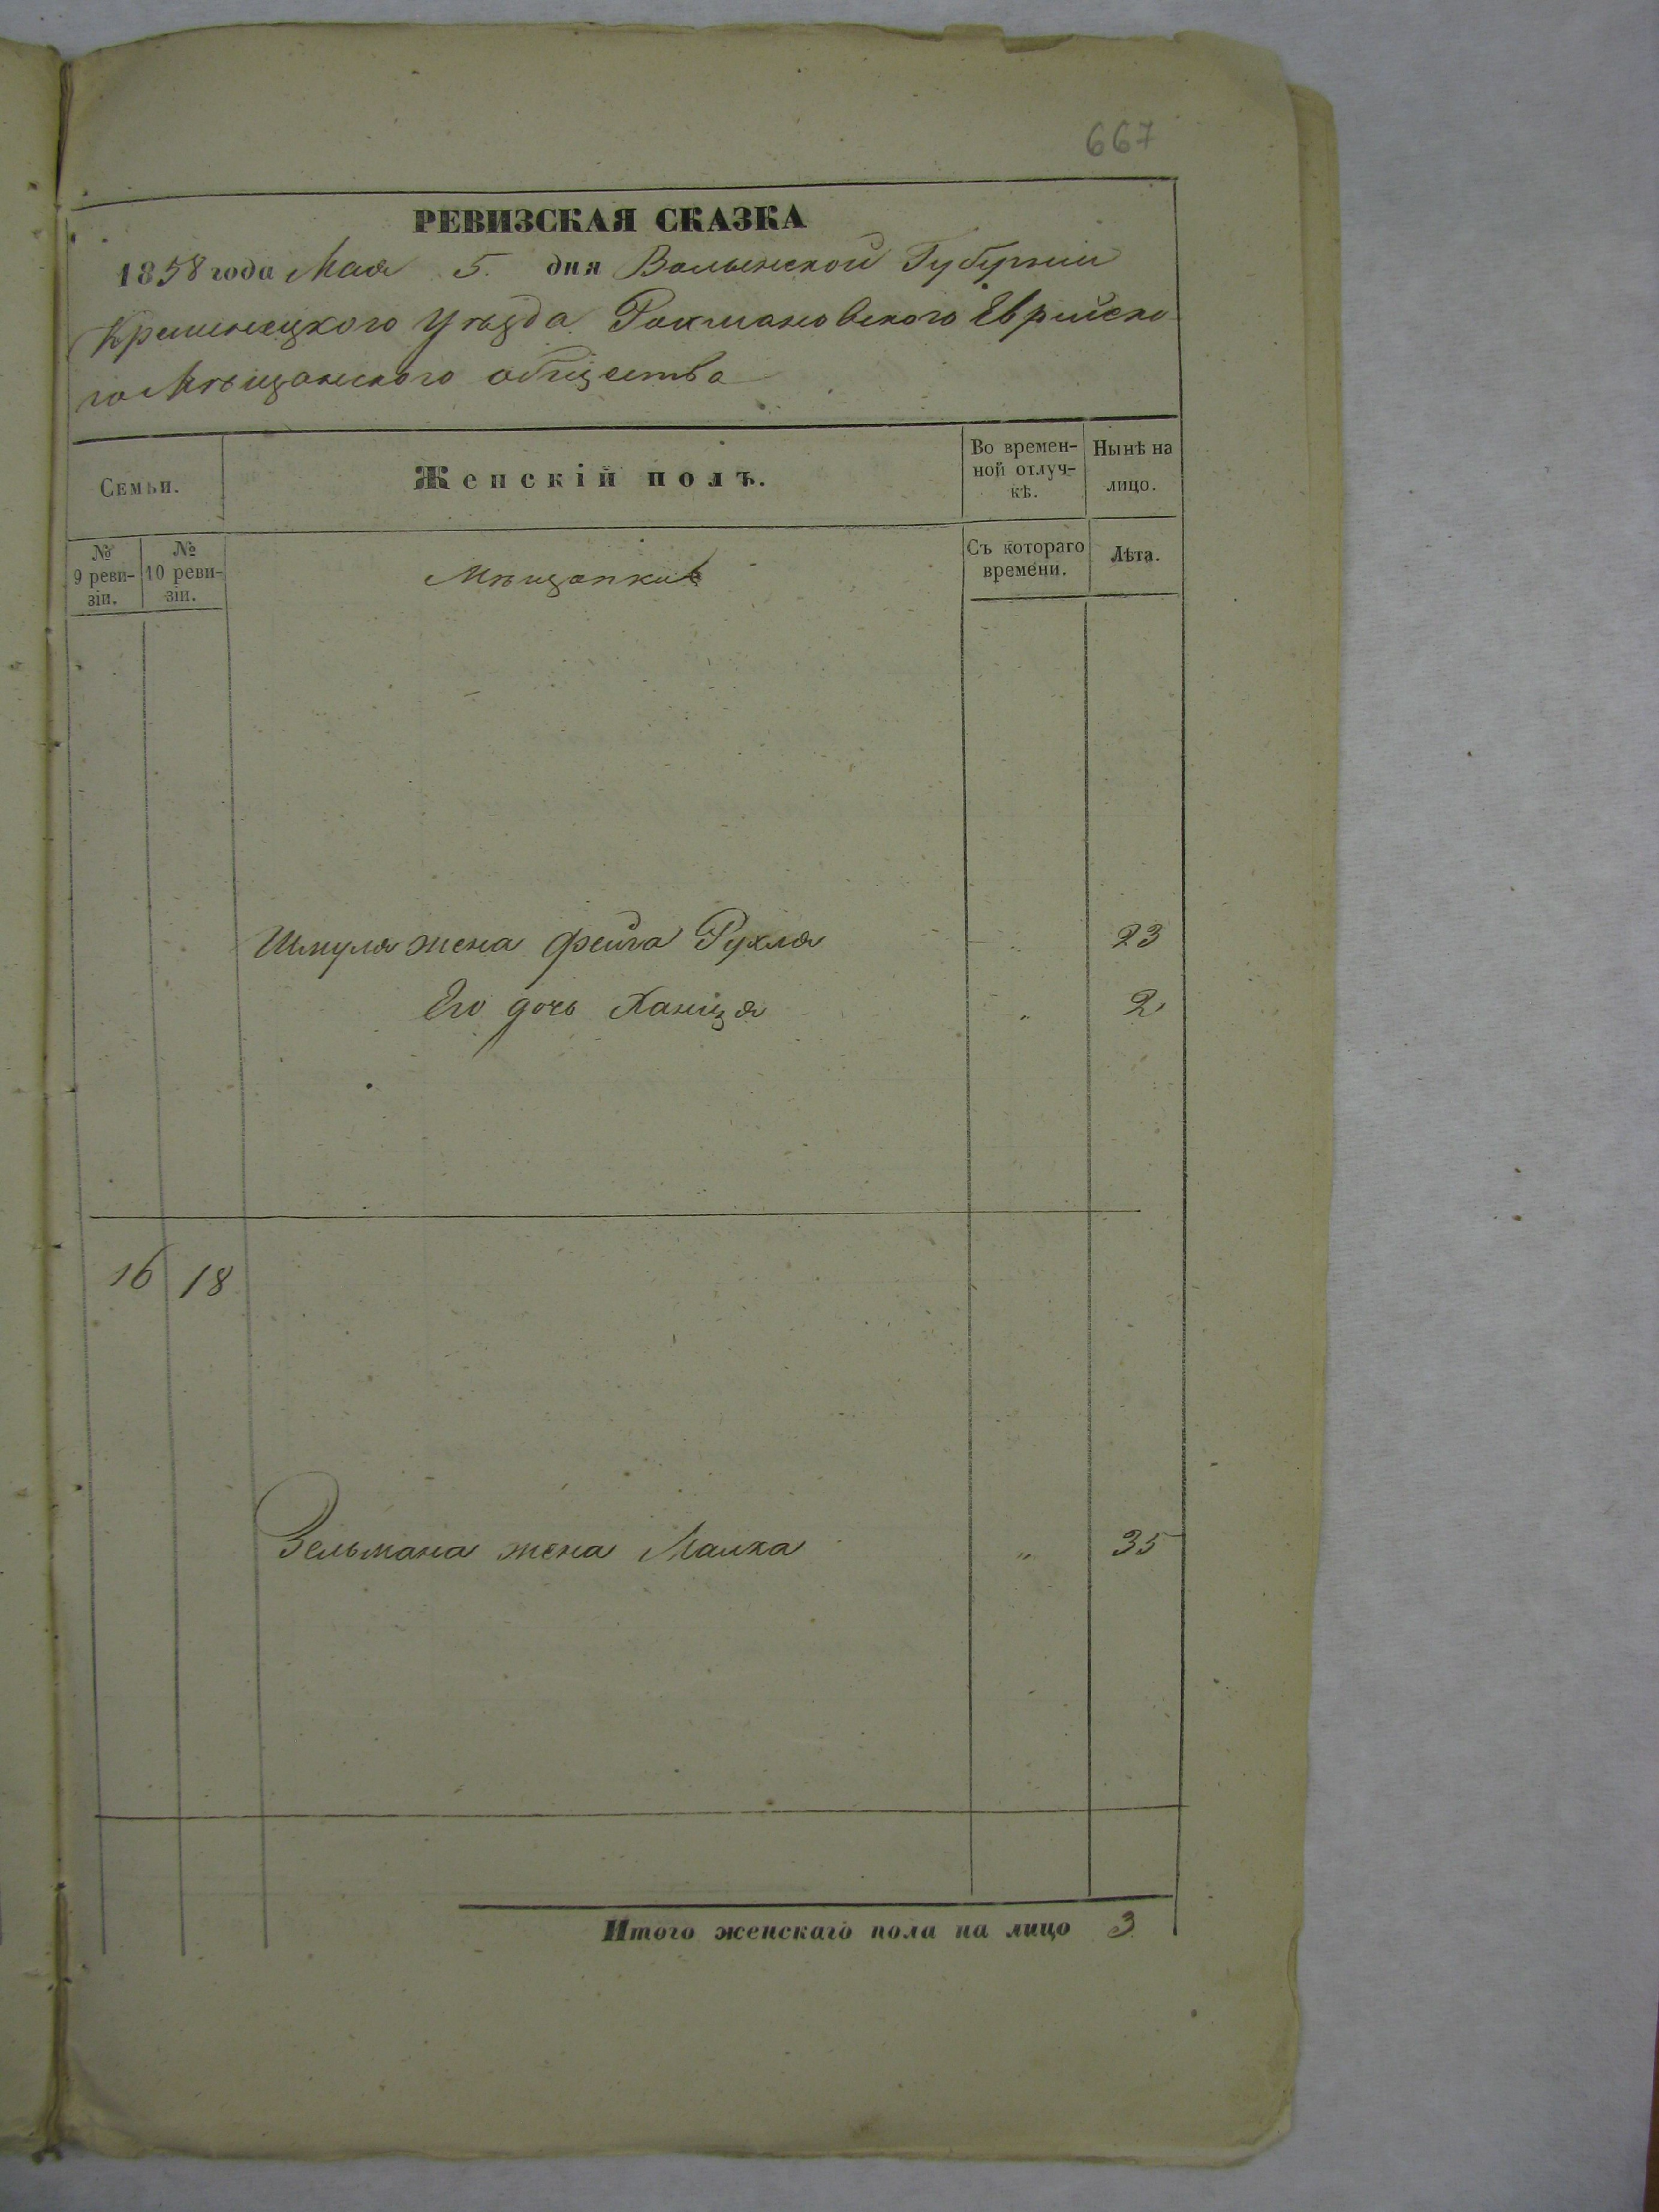 667
РЕВИЗСКАЯ СКАЗКА
1858 года Мая 5. дня Волынской Губернии
Кременецкого уѣзда Рахмановского Еврейско
го Мѣщанского общества
Семьи.
Женскій полъ.
Во времен-
ной отлуч-
кѣ.
Нынѣ на
лицо.
№
9 реви-
зіи.
№
10 реви-
зіи.
Мѣщанки
Съ котораго
времени.
Лѣта.
Шмуля жена Фейга Рухля " 23
Его дочь Ханця " 2
16 18
Зельмана жена Малка " 35
Итого женскаго пола на лицо 3